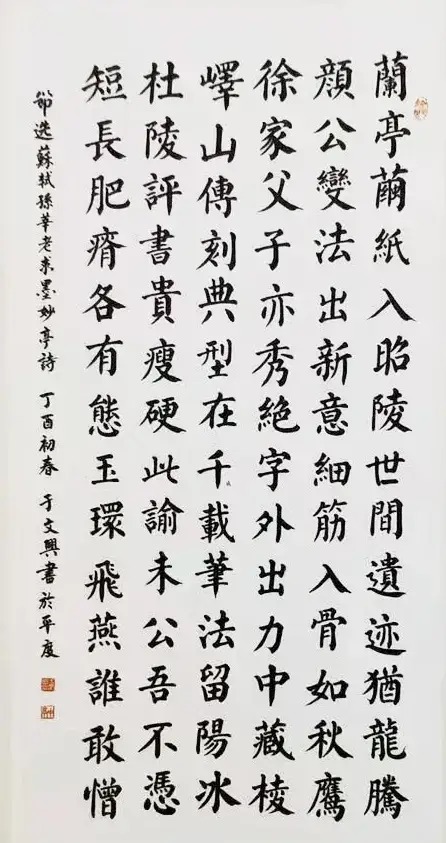 蘭亭繭紙入昭陵世間遺迹猶龍騰
顔公變法出新意細筋入骨如秋鷹
徐家父子亦秀絶字外出力中藏棱
嶧山傳刻典型在千載筆法留陽冰
杜陵評書貴瘦硬此諭未公吾不憑
短長肥瘠各有態玉環飛燕誰敢憎
節选蘇軾孫莘老求墨妙亭詩 丁酉初春 于文興書於平度